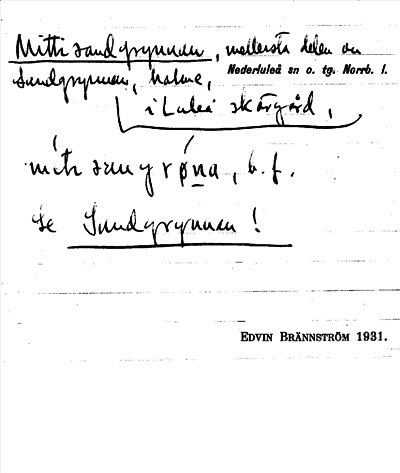 Mittisandgrynnan, mellersta delen av
Sandgrynnan, holme, Nederluleå sn o. tg. Norrb. l.
i Luleå skärgård,
sangrøna, b. f.
Se Sandgrynnan!
EDVIN BRÄNNSTRÖM 1931.